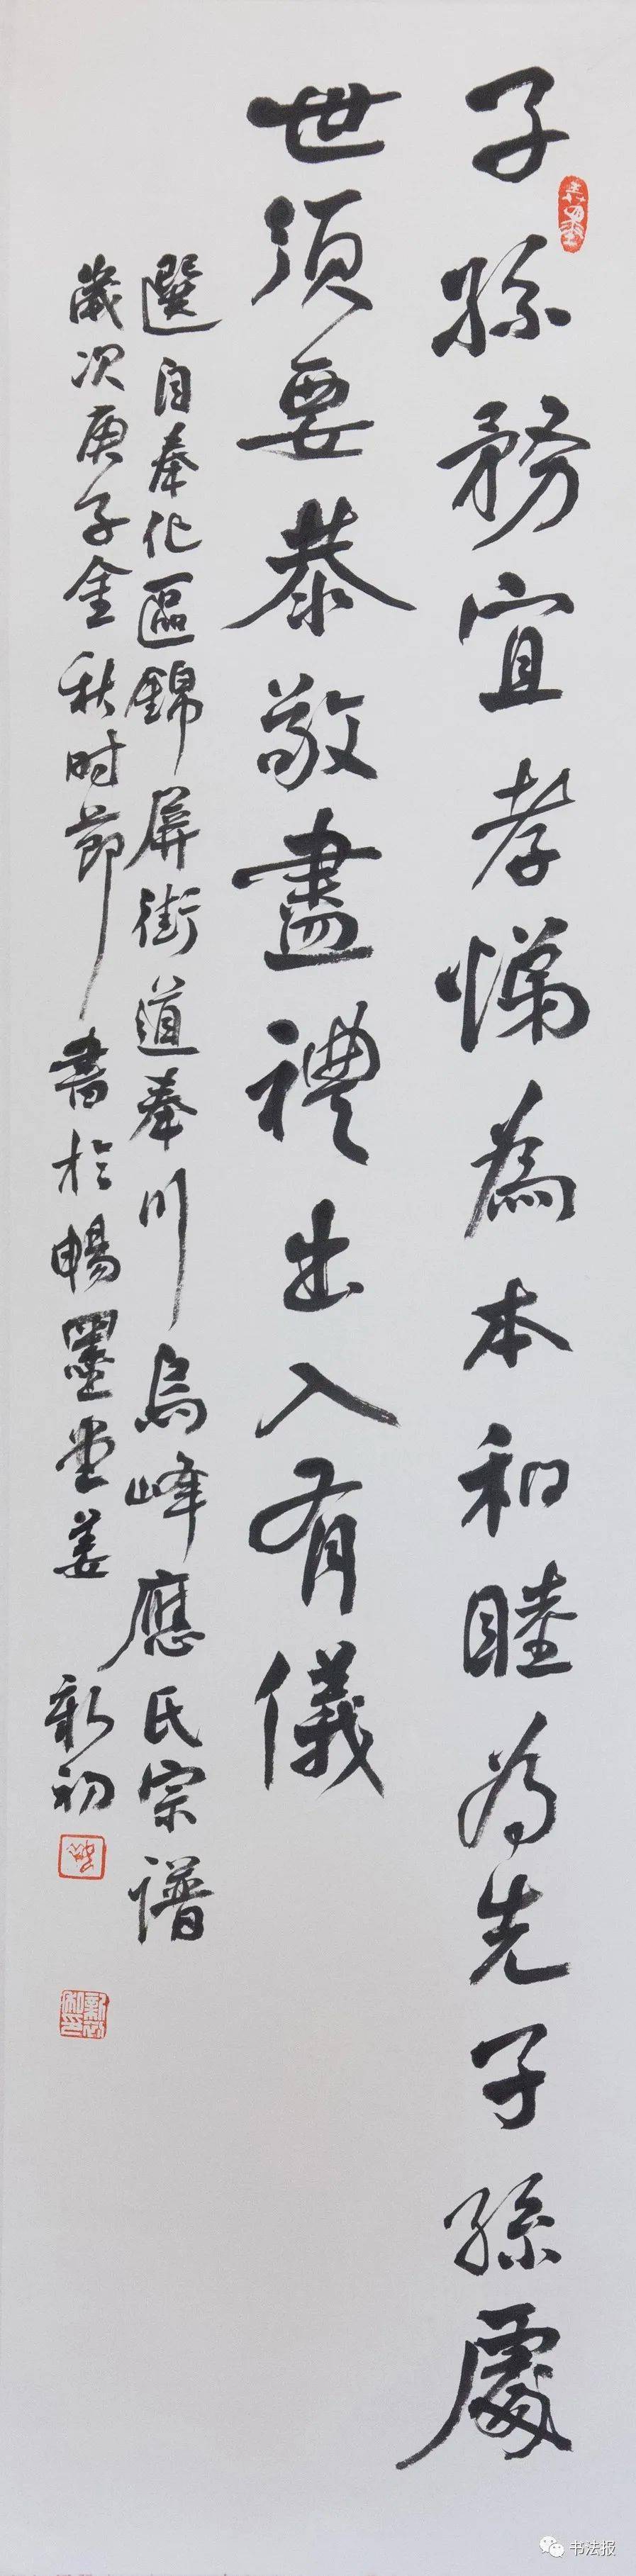 子孫務宜孝悌為本和睦為先子孫處
世須要恭敬盡禮出入有儀
選自奉化區錦屏街道奉川烏峰應氏宗譜
歲次庚子金秋时節書於暢墨堂姜新初
书法报